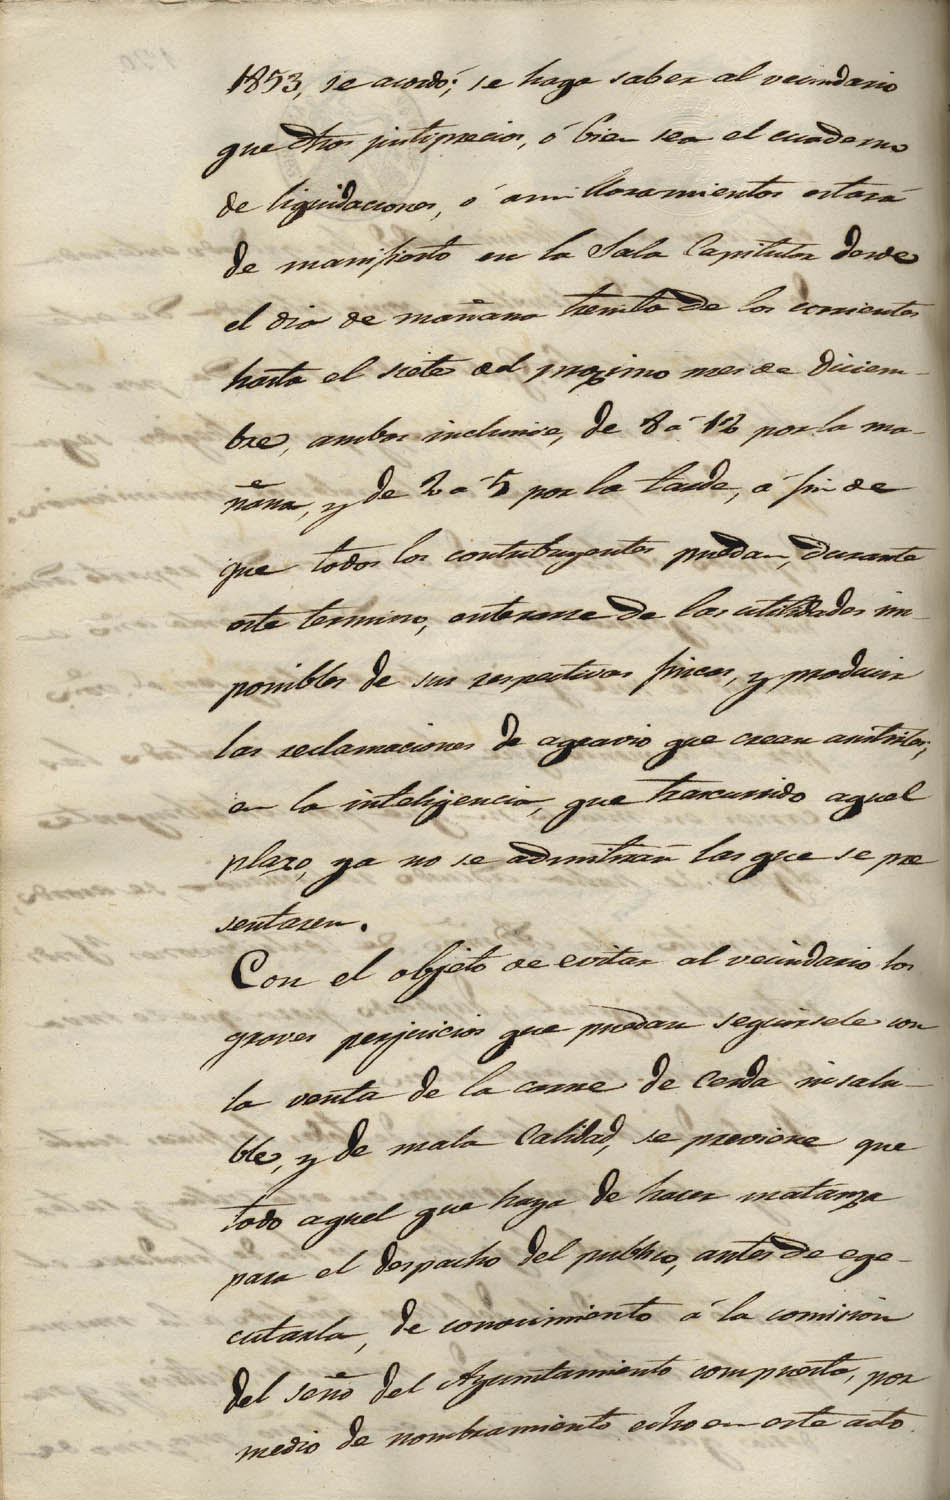 1853, se acordó; se haga saber al vecindario
que dhos justiprecios, ó bien sea el cuaderno
de liquidaciones, ó amillaramientos estará
de manifiesto en la Sala Capitular desde
el dia de mañana treinta de los corrientes
hasta el siete del proximo mes de Diciem-
bre, ambos inclusive, de 8 á 12 por la ma-
ñana, y de 2 a 5 por la tarde, á fin de
que todos los contribuyentes puedan, durante
este termino, enterarse de las utilidades im-
ponibles de sus respectivas fincas, y producir
las reclamaciones de agravio que crean asistirles;
en la inteligencia, que trascurrido aquel
plazo, ya no se admitirán las que se pre
sentaren.
Con el objeto de evitar al vecindario los
graves perjuicios que puedan seguirsele con
la venta de la carne de Cerda insalu-
ble, y de mala calidad, se previene que
todo aquel que haya de hacer matanza
para el despacho del publico, antes de ege-
cutarla, de conocimiento á la comision
del seño del Ayuntamiento compuesta, por
medio de nombramiento echo en este acto